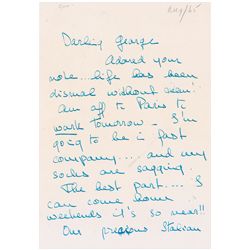 Aug/65
Darling George
Adored your
note...life has been
dismal without seein'.
Am off to Paris to
work tomorrow – I'm
going to be in fast
company.... and my
socks are sagging
The best part.... I
can come home
weekends it's so near!!
Our precious